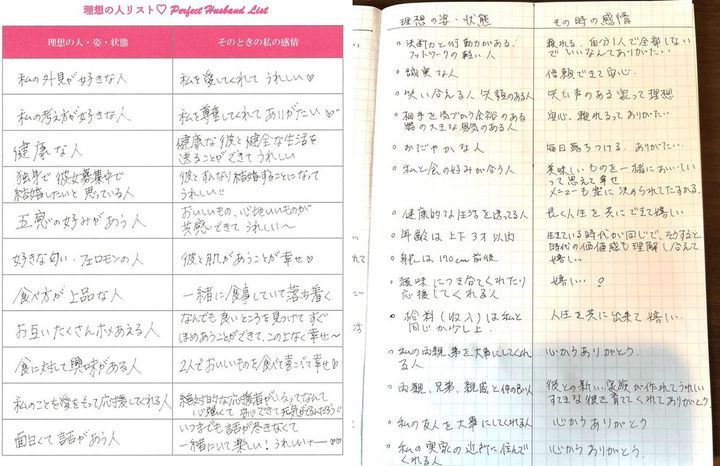 理想の人リスト♡ Perfect Husband List
理想の人・姿・状態
そのときの私の感情
私の外見が好きな人
私を愛してくれて うれしい♡
私の考え方が好きな人
私を尊重してくれてありがたい♡
健康な人
健康な彼と健全な生活を
送ることができて うれしい
独身で彼女募集中で
結婚したいと思っている人
彼とすんなり結婚することになって
うれしい!!
五感の好みがあう人
おいしいもの、心地いいものが
共感できてうれしい〜
好きな匂い・フェロモンの人
彼と肌があうことが幸せ♡
食べ方が上品な人
一緒に食事していて落ち着く
お互いたくさんホメあえる人
なんでも良いところを見つけてすぐ
ほめあうことができて、この上なく幸せ〜
食に対して興味がある人
2人でおいしいものを食べて喜こべて幸せ♡
私のことを愛をもって応援してくれる人
絶対的な応援者がいるってなんて
面白くて話があう人
いつまでも話が尽きなくて
一緒にいて楽しい!うれしいー♡♡
理想の姿・状態
その時の感情
○決断力と行動力がある。
フットワークの軽い人
頼れる。自分1人で全部しない
でいいなんてありがたい…
○誠実な人
信頼できて安心。
○笑い合える人 笑顔のある人
笑い声のある家って理想
○相手を気づかう余裕のある
器の大きな男気のある人
安心、頼れるってありがたい…
○おだやかな人
毎日落ちつける。ありがたい…
○私と食の好みが合う人
美味しいものを一緒においしい
って思えて幸せ
メニューも楽に決められてたすかる。
○健康的な生活を送ってる人
長く人生を共にできて嬉しい
○年齢は上下3才以内
生きている時代が同じで、そうすると
時代の価値感も理解し合えて
嬉しい
○身長は170cm前後
○趣味につき合てくれたり
応援してくれる人
嬉しい…?
○給料(収入)は私と
同じか少し上.
人生を共に出来て嬉しい.
○私の両親、弟を大事にしてくれ
る人
心からありがとう.
○両親、兄弟、親戚と仲の良い人
彼との新しい家族が作れてうれしい
すてきな彼を育ててくれてありがとう
○私の友人を大事にしてくれる人
心からありがとう
○私の実家の近所に住んで
くれる人
心からありがとう.